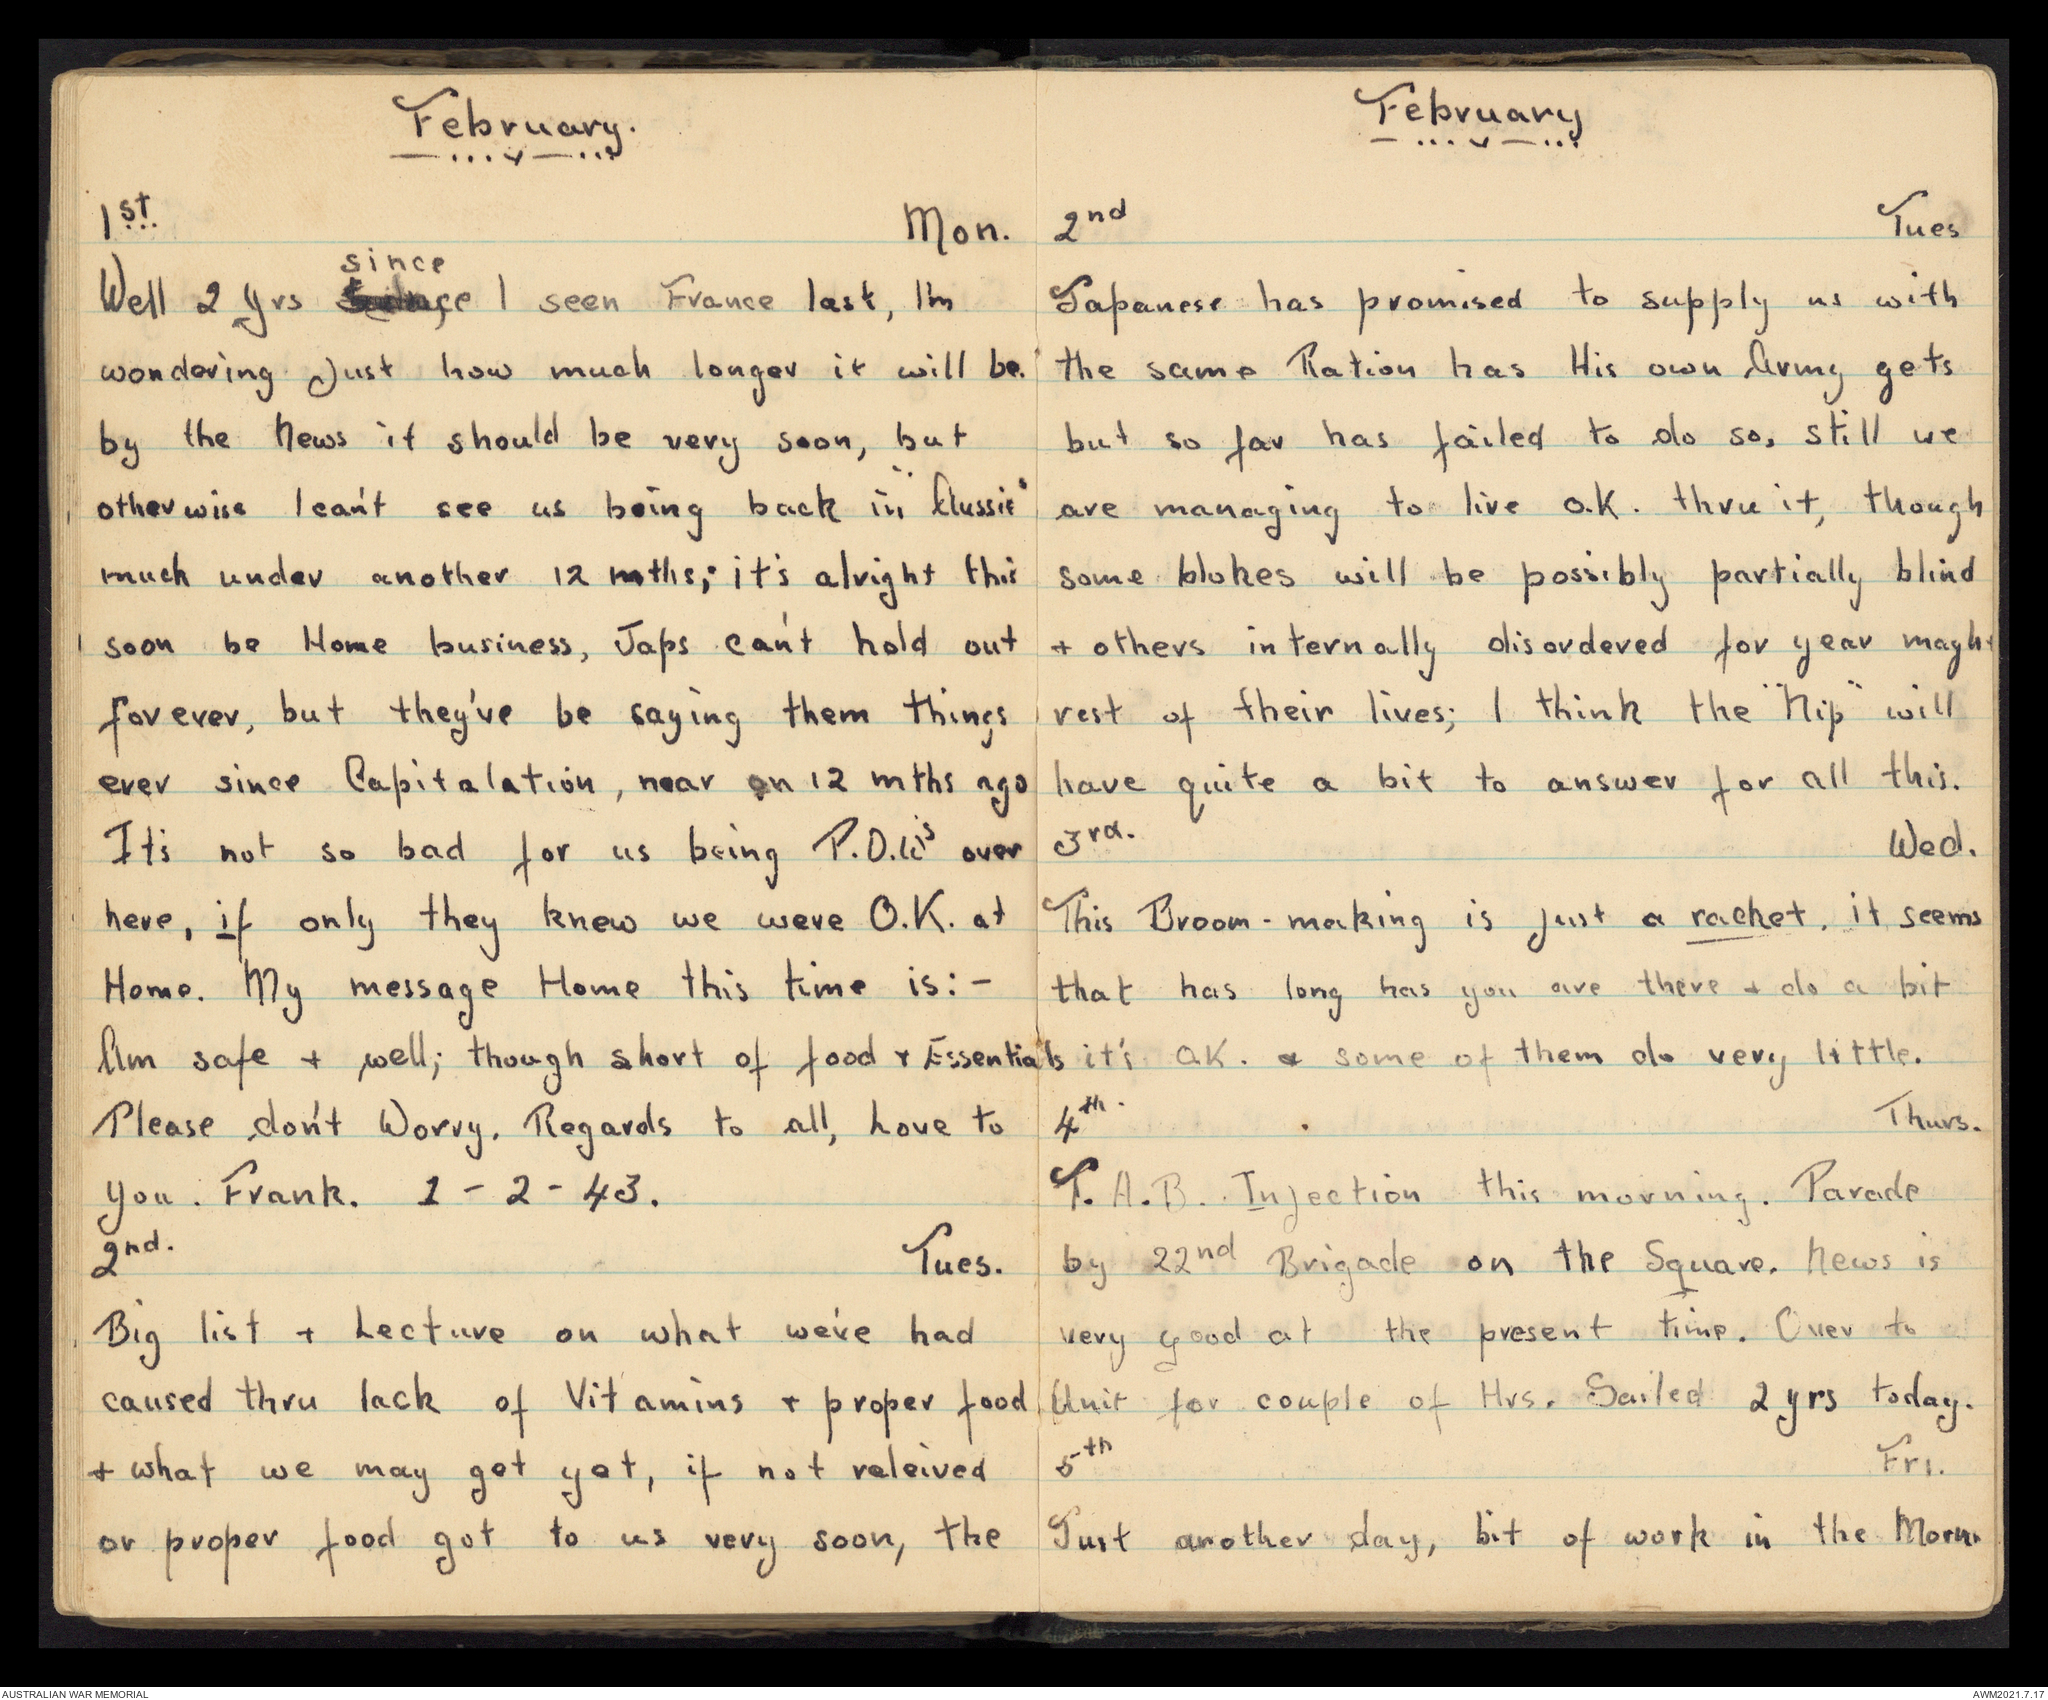 February.
1st Mon.
since
Well 2 yrs I seen France last, I'm
wondering just how much longer it will be.
by the News it should be very soon, but
otherwise I can't see us being back in "Aussie"
much under another 12 mths; it's alright this
soon be Home business, Japs can't hold out
forever, but they've be saying them things
ever since Capitalation, near on 12 mths ago
It's not so bad for us being P.O.W's over
here, if only they knew we were O.K. at
Home. My message Home this time is:-
Am safe + well; though short of food + Essentials
Please don't Worry. Regards to all, Love to
you. Frank. 1-2-43.
2nd. Tues.
Big list + Lecture on what we've had
caused thru lack of Vitamins + proper food
+ what we may get yet, if not releived
or proper food got to us very soon, the
February
2nd Tues
Japanese has promised to supply us with
the same Ration has His own Army gets
but so far has failed to do so, still we
are managing to live O.K. thru it, though
some blokes will be possibly partially blind
+ others internally disordered for year maght
rest of their lives; I think the "Nip" will
have quite a bit to answer for all this.
3rd. Wed.
This Broom-making is just a racket, it seems
that has long has you are there + do a bit
it's OK. & some of them do very little.
4th. Thurs.
T.A.B. Injection this morning. Parade
by 22nd Brigade on the Square. News is
very good at the present time. Over to
Unit for couple of Hrs. Sailed 2 yrs today.
5th Fri.
Just another day, bit of work in the Morn.
AUSTRALIAN WAR MEMORIAL
AWM2021.7.17